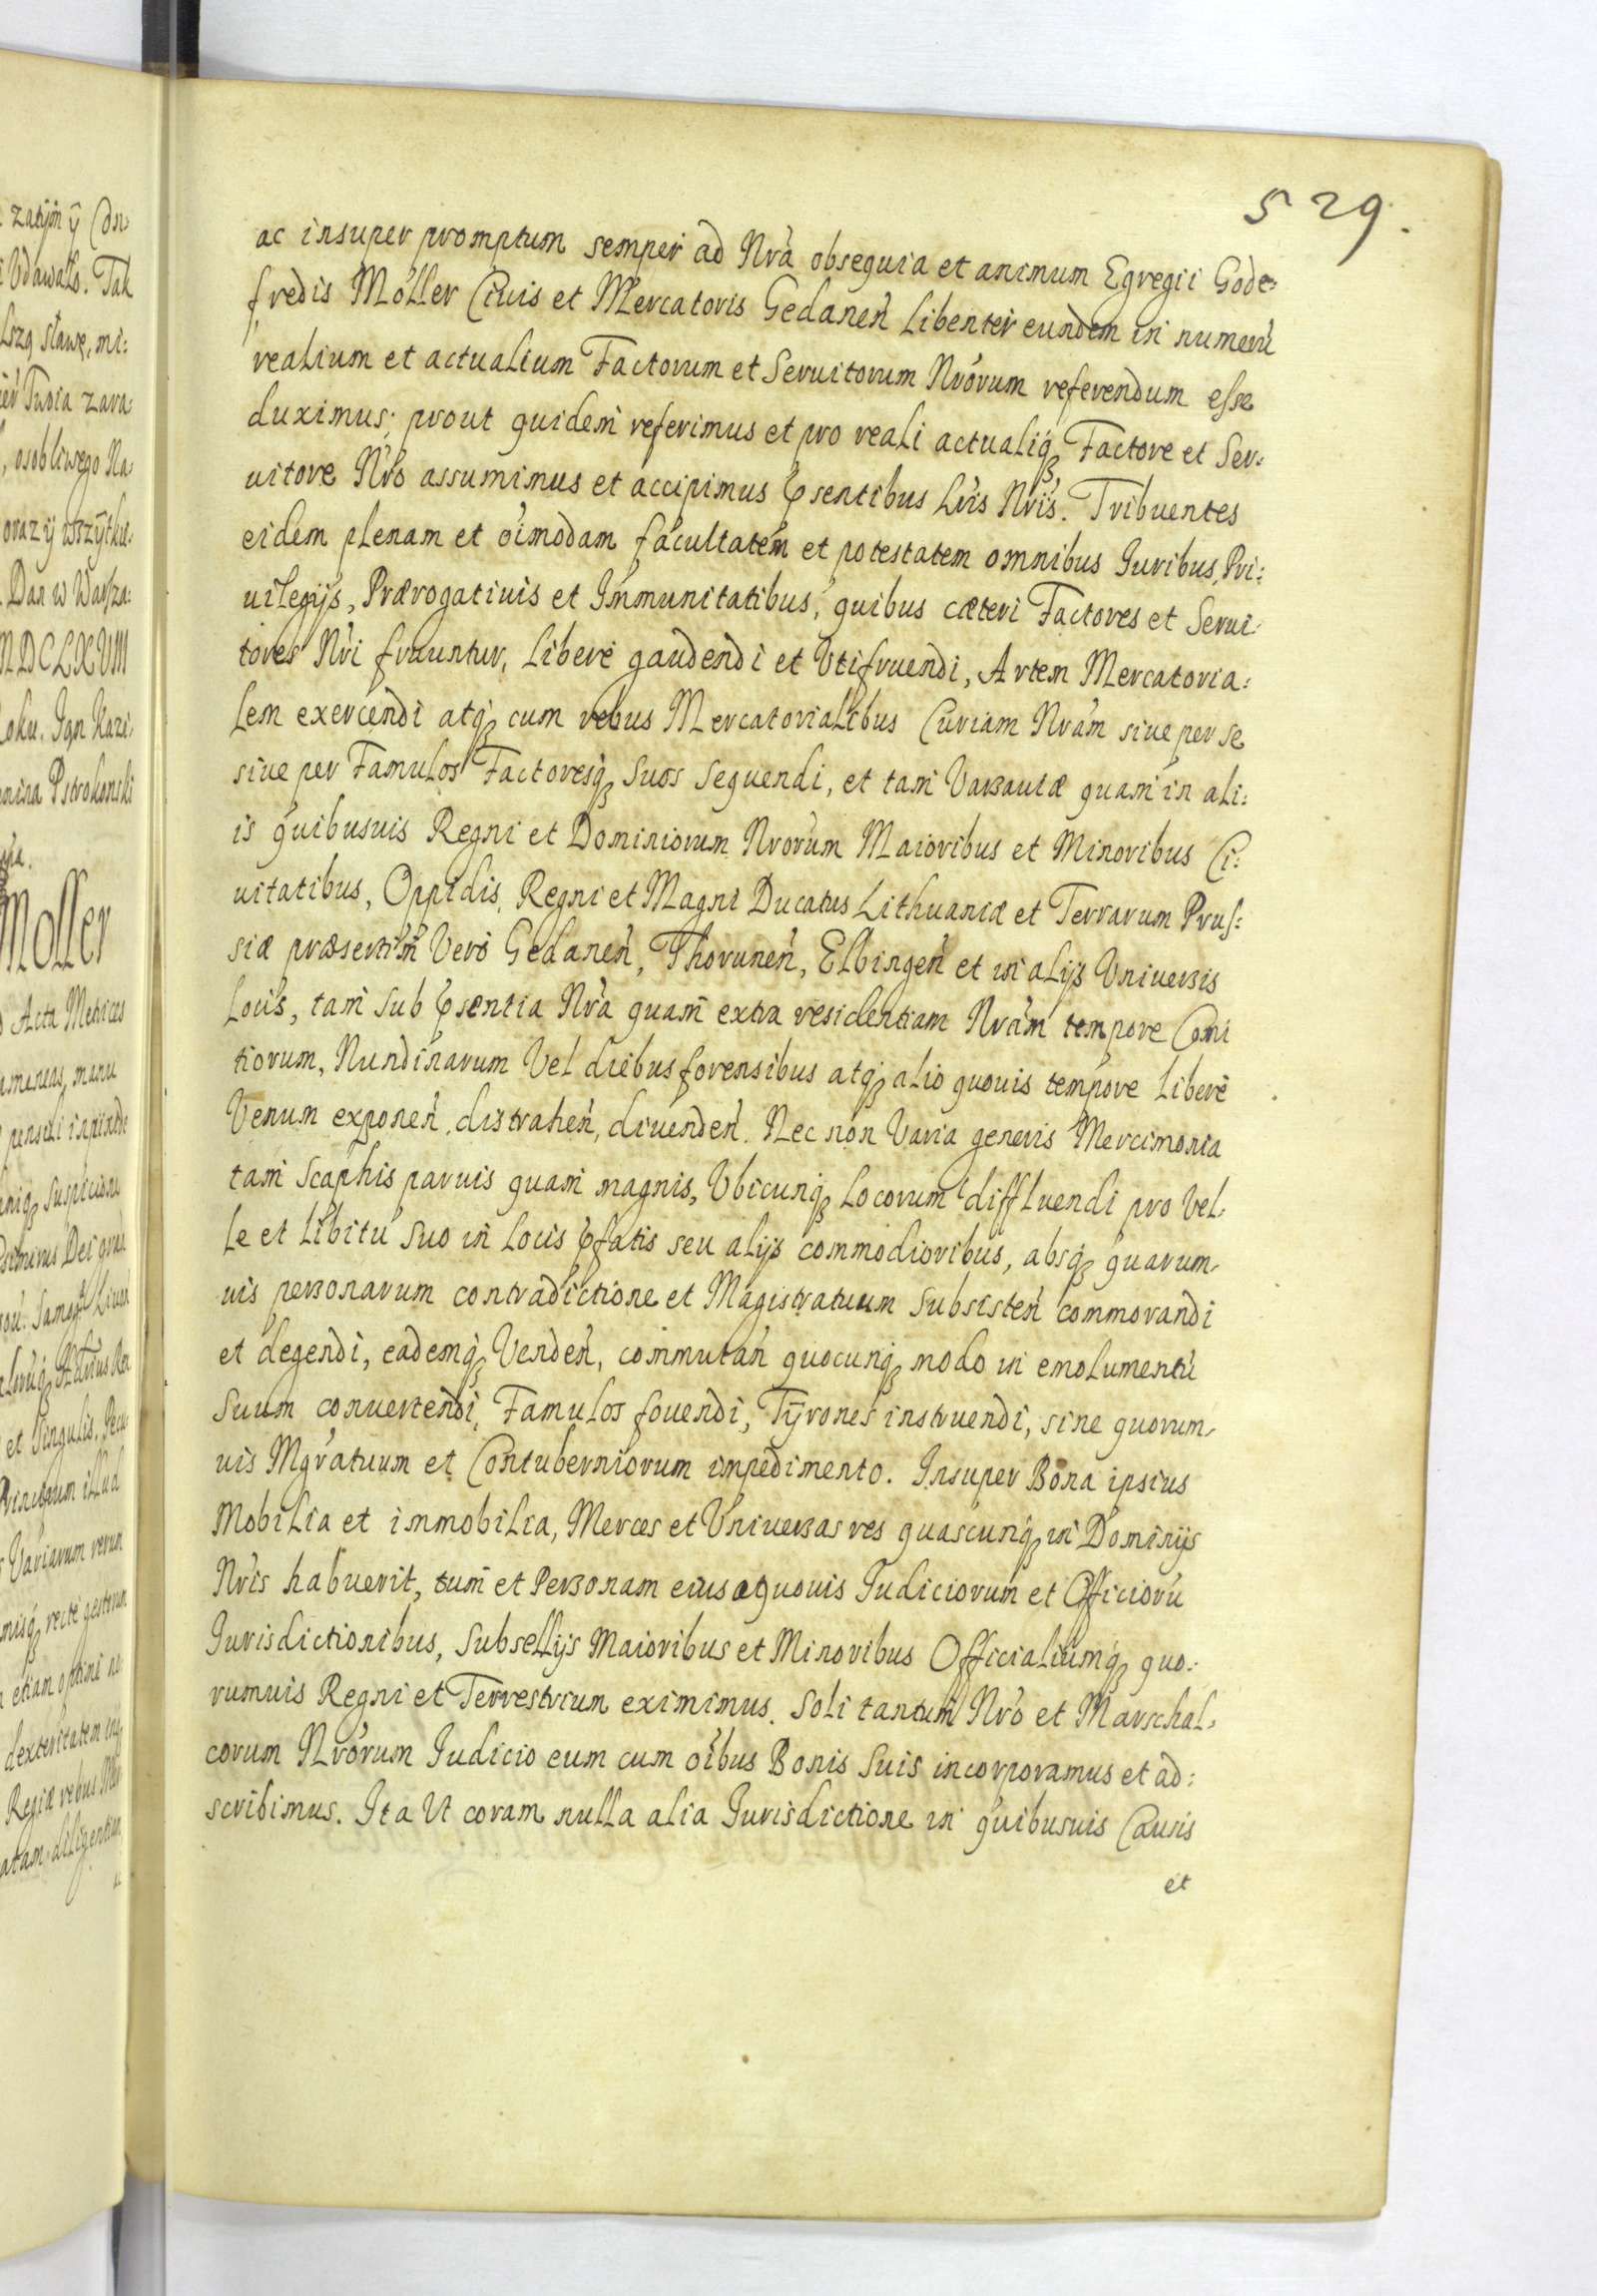 529.
ac insuper promptum semper ad Nrã obsequia et animum Egregii Gode:
fredis Möller Ciuis et Mercatoris Gedanen̄ Libenter eundem in numerū
realium et actualium Factorum et Seruitorum Nrõrum referendum esse
duximus; prout quidem referimus et pro reali actualiq́ꝫ Factore et Ser:
uitore Nrõ assumimus et accipimus ꝓsentibus Lrĩs Nrĩs. Tribuentes
eidem plenam et oĩmodam facultatem et potestatem omnibus Juribus, Pri:
uilegijs, Prærogatiuis et Immunitatibus, quibus cæteri Factores et Serui:
tores Nrĩ fruuntur, Liberè gaudendi et Utifruendi, Artem Mercatoria:
lem exercendi atq́ꝫ cum rebus Mercatorialibus Curiam Nrãm siue per se
siue per Famulos Factoresq́ꝫ Suos Sequendi, et tam Varsauiæ quam in ali:
is quibusuis Regni et Dominiorum Nrõrum Maioribus et Minoribus Ci:
uitatibus, Oppidis, Regni et Magni Ducatus Lithuaniæ et Terrarum Prus:
siæ præsertim Verò Gedanen̄, Thorunen̄, Elbingen̄ et in alijs Vniuersis
Locis, tam sub ꝓsentia Nrã quam extra residentiam Nrãm tempore Comi
tiorum, Nundinarum Vel diebus forensibus atq́ꝫ alio quouis tempore liberè
Venum exponen̄, distrahen̄, diuenden̄. Nec non Varia generis Mercimonia
tam Scaphis paruis quam magnis, Vbicunq́ꝫ Locorum diffluendi pro Vel:
le et Libitu Suo in Locis ꝓfatis seu alijs commodioribus, absq́ꝫ quarum:
uis personarum contradictione et Magistratuum Subsisten̄ commorandi
et degendi, eademq́ꝫ Venden̄, commutan̄ quocunq́ꝫ modo in emolumentū
Suum conuertendi, Famulos fouendi, Tÿrones instruendi, sine quorum:
uis Mgrãtuum et Contuberniorum impedimento. Insuper Bona ipsius
Mobilia et immobilia, Merces et Vniuersas res quascunq́ꝫ in Dominijs
Nrĩs habuerit, tum et Personam eius a quouis Judiciorum et Officiorū
Jurisdictionibus, Subsellijs Maioribus et Minoribus Officialiumq́ꝫ quo:
rumuis Regni et Terrestrium eximimus. Soli tantum Nrõ et Marschal:
corum Nrõrum Judicio eum cum oĩbus Bonis Suis incorporamus et ad:
scribimus. Ita Ut coram nulla alia Jurisdictione in quibusuis Causis
et